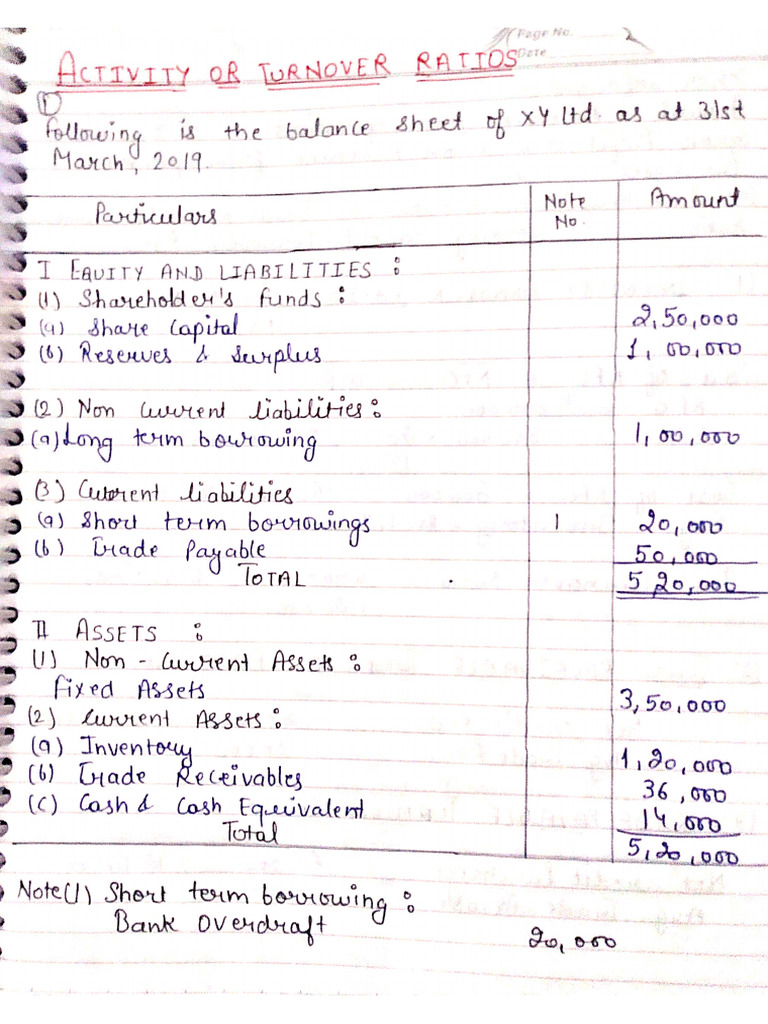 Page No. 2
Date
ACTIVITY OR TURNOVER RATIOS
①
Following is the balance sheet of XY Ltd. as at 31st
March, 2019.
Particulars Note No. Amount
I EQUITY AND LIABILITIES :
(1) Shareholder's funds :
(a) Share Capital 2,50,000
(b) Reserves & Surplus 1,00,000
(2) Non Current liabilities :
(a) Long term borrowing 1,00,000
(3) Current liabilities
(a) Short term borrowings 1 20,000
(b) Trade Payable 50,000
TOTAL 5,20,000
II ASSETS :
(1) Non - Current Assets :
Fixed Assets 3,50,000
(2) Current Assets :
(a) Inventory 1,20,000
(b) Trade Receivables 36,000
(c) Cash & Cash Equivalent 14,000
Total 5,20,000
Note(1) Short term borrowing :
Bank Overdraft 20,000